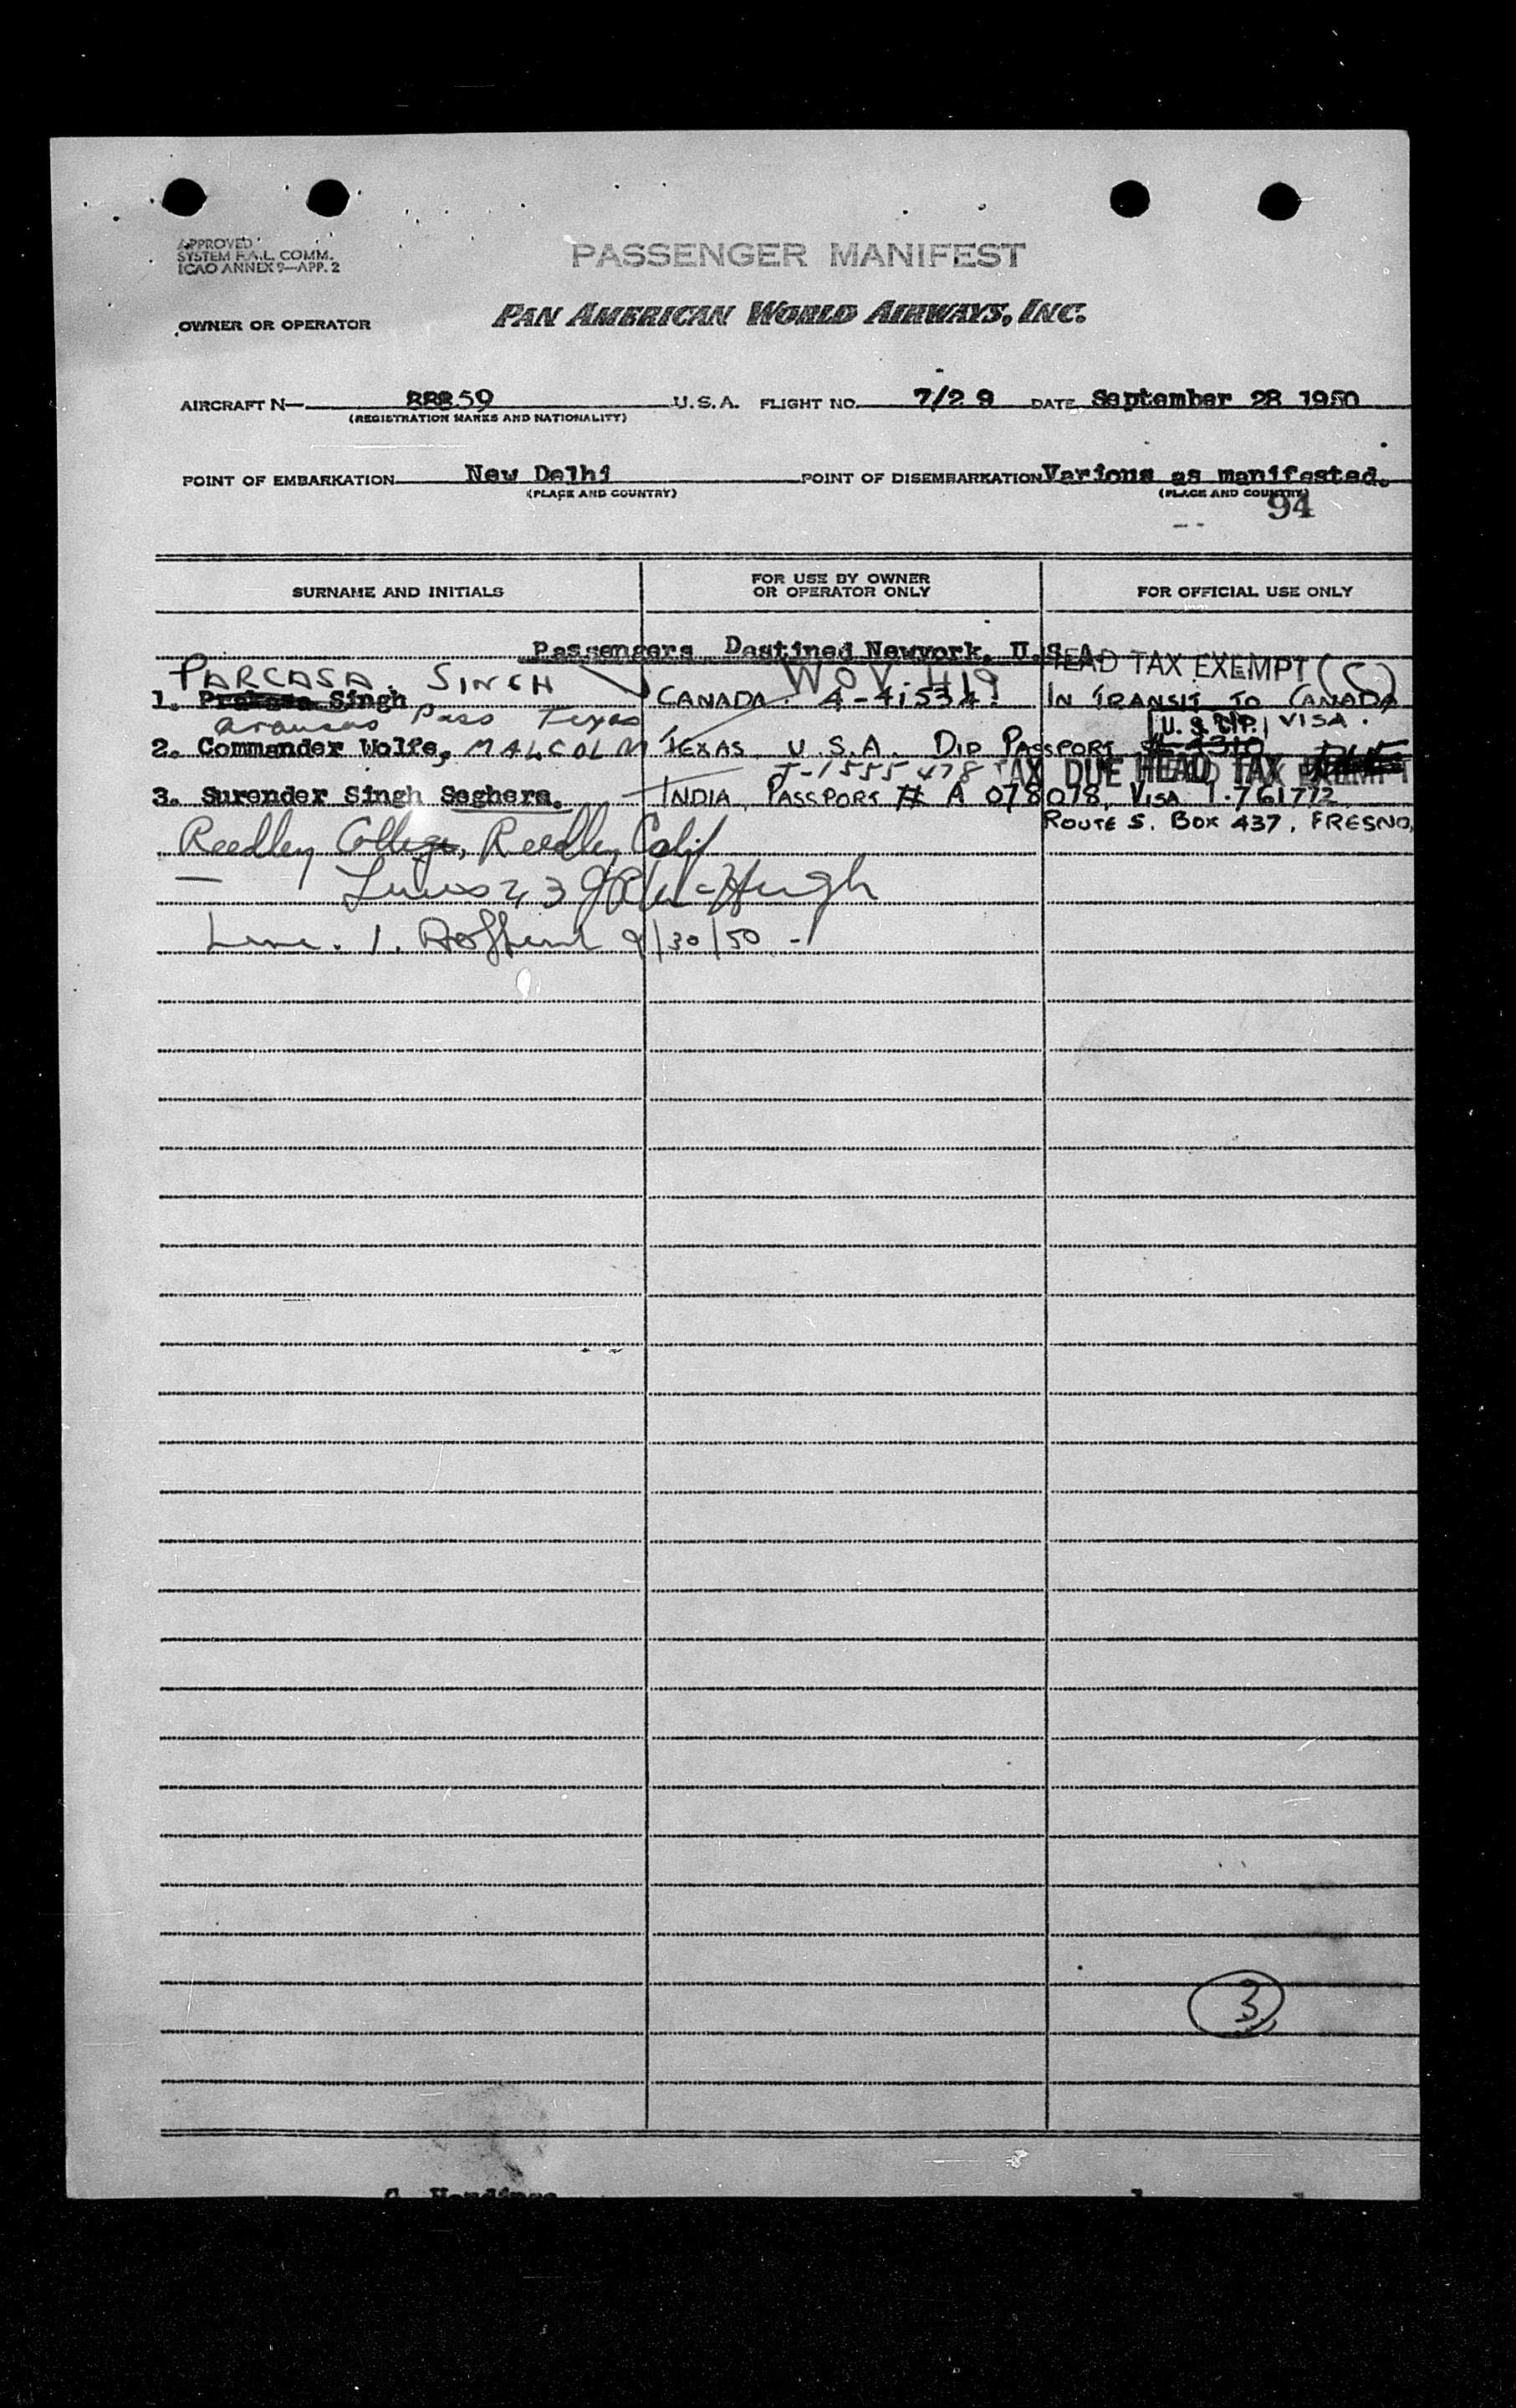 APPROVED
SYSTEM F.A.L. COMM.
ICAO ANNEX 9—APP. 2
PASSENGER MANIFEST
OWNER OR OPERATOR
PAN AMERICAN WORLD AIRWAYS, INC.
AIRCRAFT N— 88859 U.S.A. FLIGHT NO. 7/29 DATE September 28 1950
(REGISTRATION MARKS AND NATIONALITY)
POINT OF EMBARKATION New Delhi POINT OF DISEMBARKATION Various as manifested.
(PLACE AND COUNTRY) (PLACE AND COUNTRY)
94
SURNAME AND INITIALS FOR USE BY OWNER OR OPERATOR ONLY FOR OFFICIAL USE ONLY
Passengers Destined Newyork, U.S.A.
HEAD TAX EXEMPT (C)
PARCASA. SINGH WOV. 419
1. Singh CANADA. 4-41534. IN TRANSIT TO CANADA
Aransas Pass Texas VISA.
2. Commander Wolfe, MALCOLM TEXAS U.S.A. DIP PASSPORT
I-1555478 TAX DUE HEAD TAX
3. Surender Singh Seghera. INDIA, PASSPORT # A 078078, VISA 1.761772
ROUTE 5. BOX 437, FRESNO,
Reedley College, Reedley Calif
Lines 2, 3
Line. 1. 9/30/50 -
3